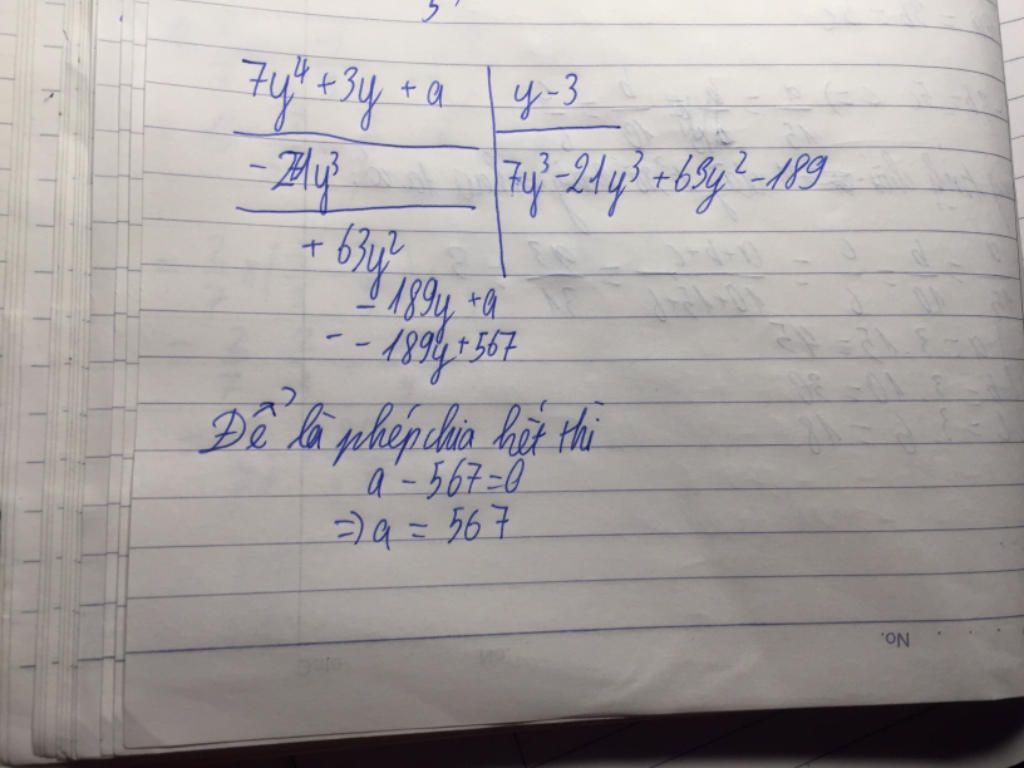 7y⁴ + 3y + a
y - 3
- 21y³
7y³ - 21y³ + 63y² - 189
+ 63y²
- 189y + a
- - 189y + 567
Để là phép chia hết thì
a - 567 = 0
=> a = 567
No.